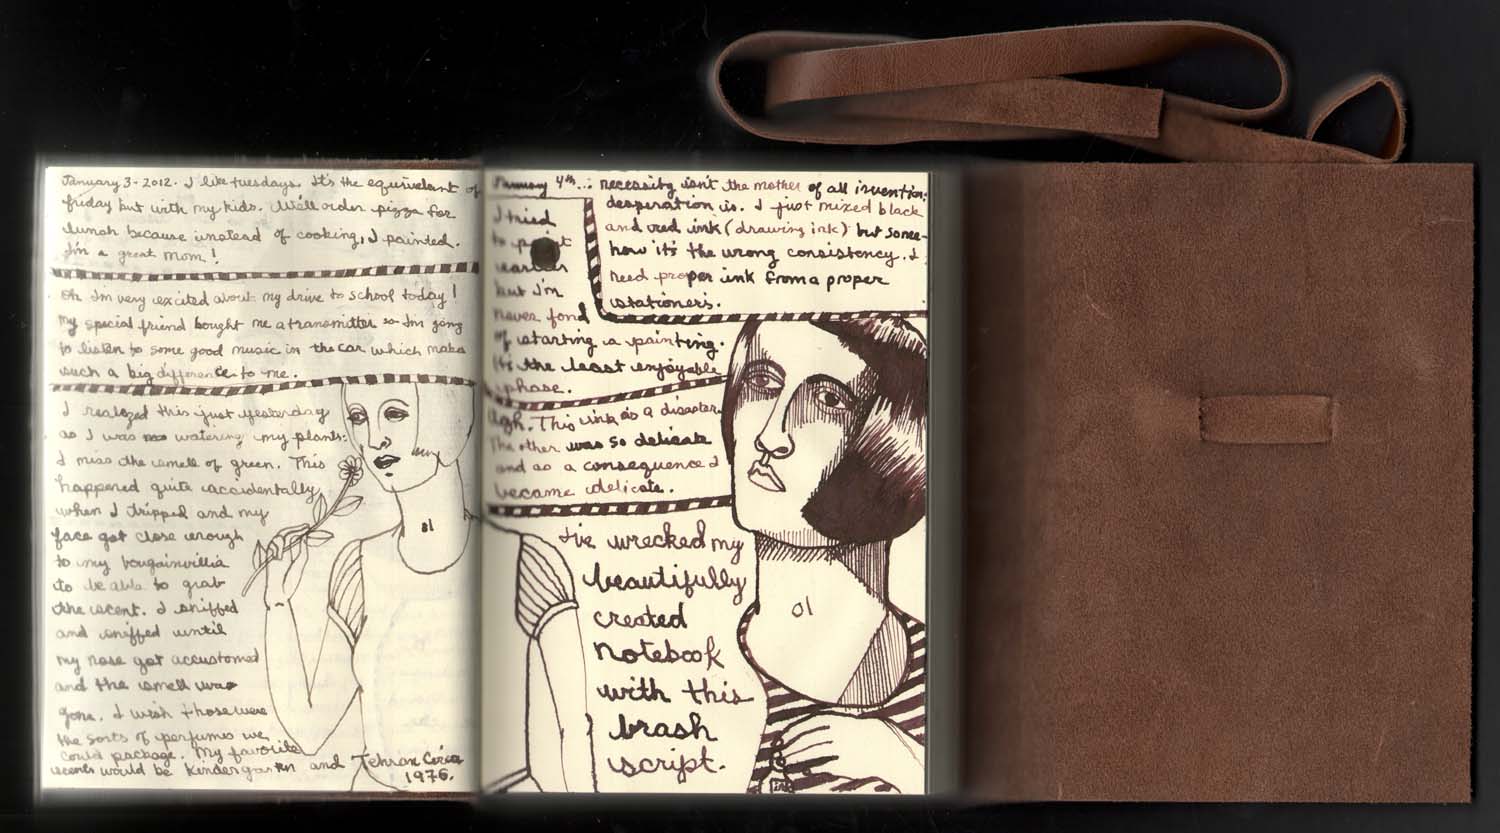 January 3 - 2012. I like tuesdays. It's the equivelant of
friday but with my kids. We'll order pizza for
lunch because instead of cooking, I painted.
I'm a great mom!
Oh I'm very excited about my drive to school today!
My special friend bought me a transmitter so I'm going
to listen to some good music in the car which makes
such a big difference to me.
I realized this just yesterday
as I was watering my plants:
I miss the smell of green. This
happened quite accidentally
when I tripped and my
face got close enough
to my bougainvillia
to be able to grab
the scent. I sniffed
and sniffed until
my nose got accustomed
and the smell was
gone. I wish those were
the sorts of perfumes we
could package. My favorite
scents would be Kindergarten and Tehran Circa
1976.
January 4th...
I tried
to paint
earlier
but I'm
never fond
of starting a painting.
It's the least enjoyable
phase.
necessity isn't the mother of all invention:
desperation is. I just mixed black
and red ink (drawing ink) but some-
how it's the wrong consistency. I
need proper ink from a proper
stationers.
Ugh. This ink is a disaster.
The other was so delicate
and as a consequence I
became delicate.
I've wrecked my
beautifully
created
notebook
with this
brash
script.